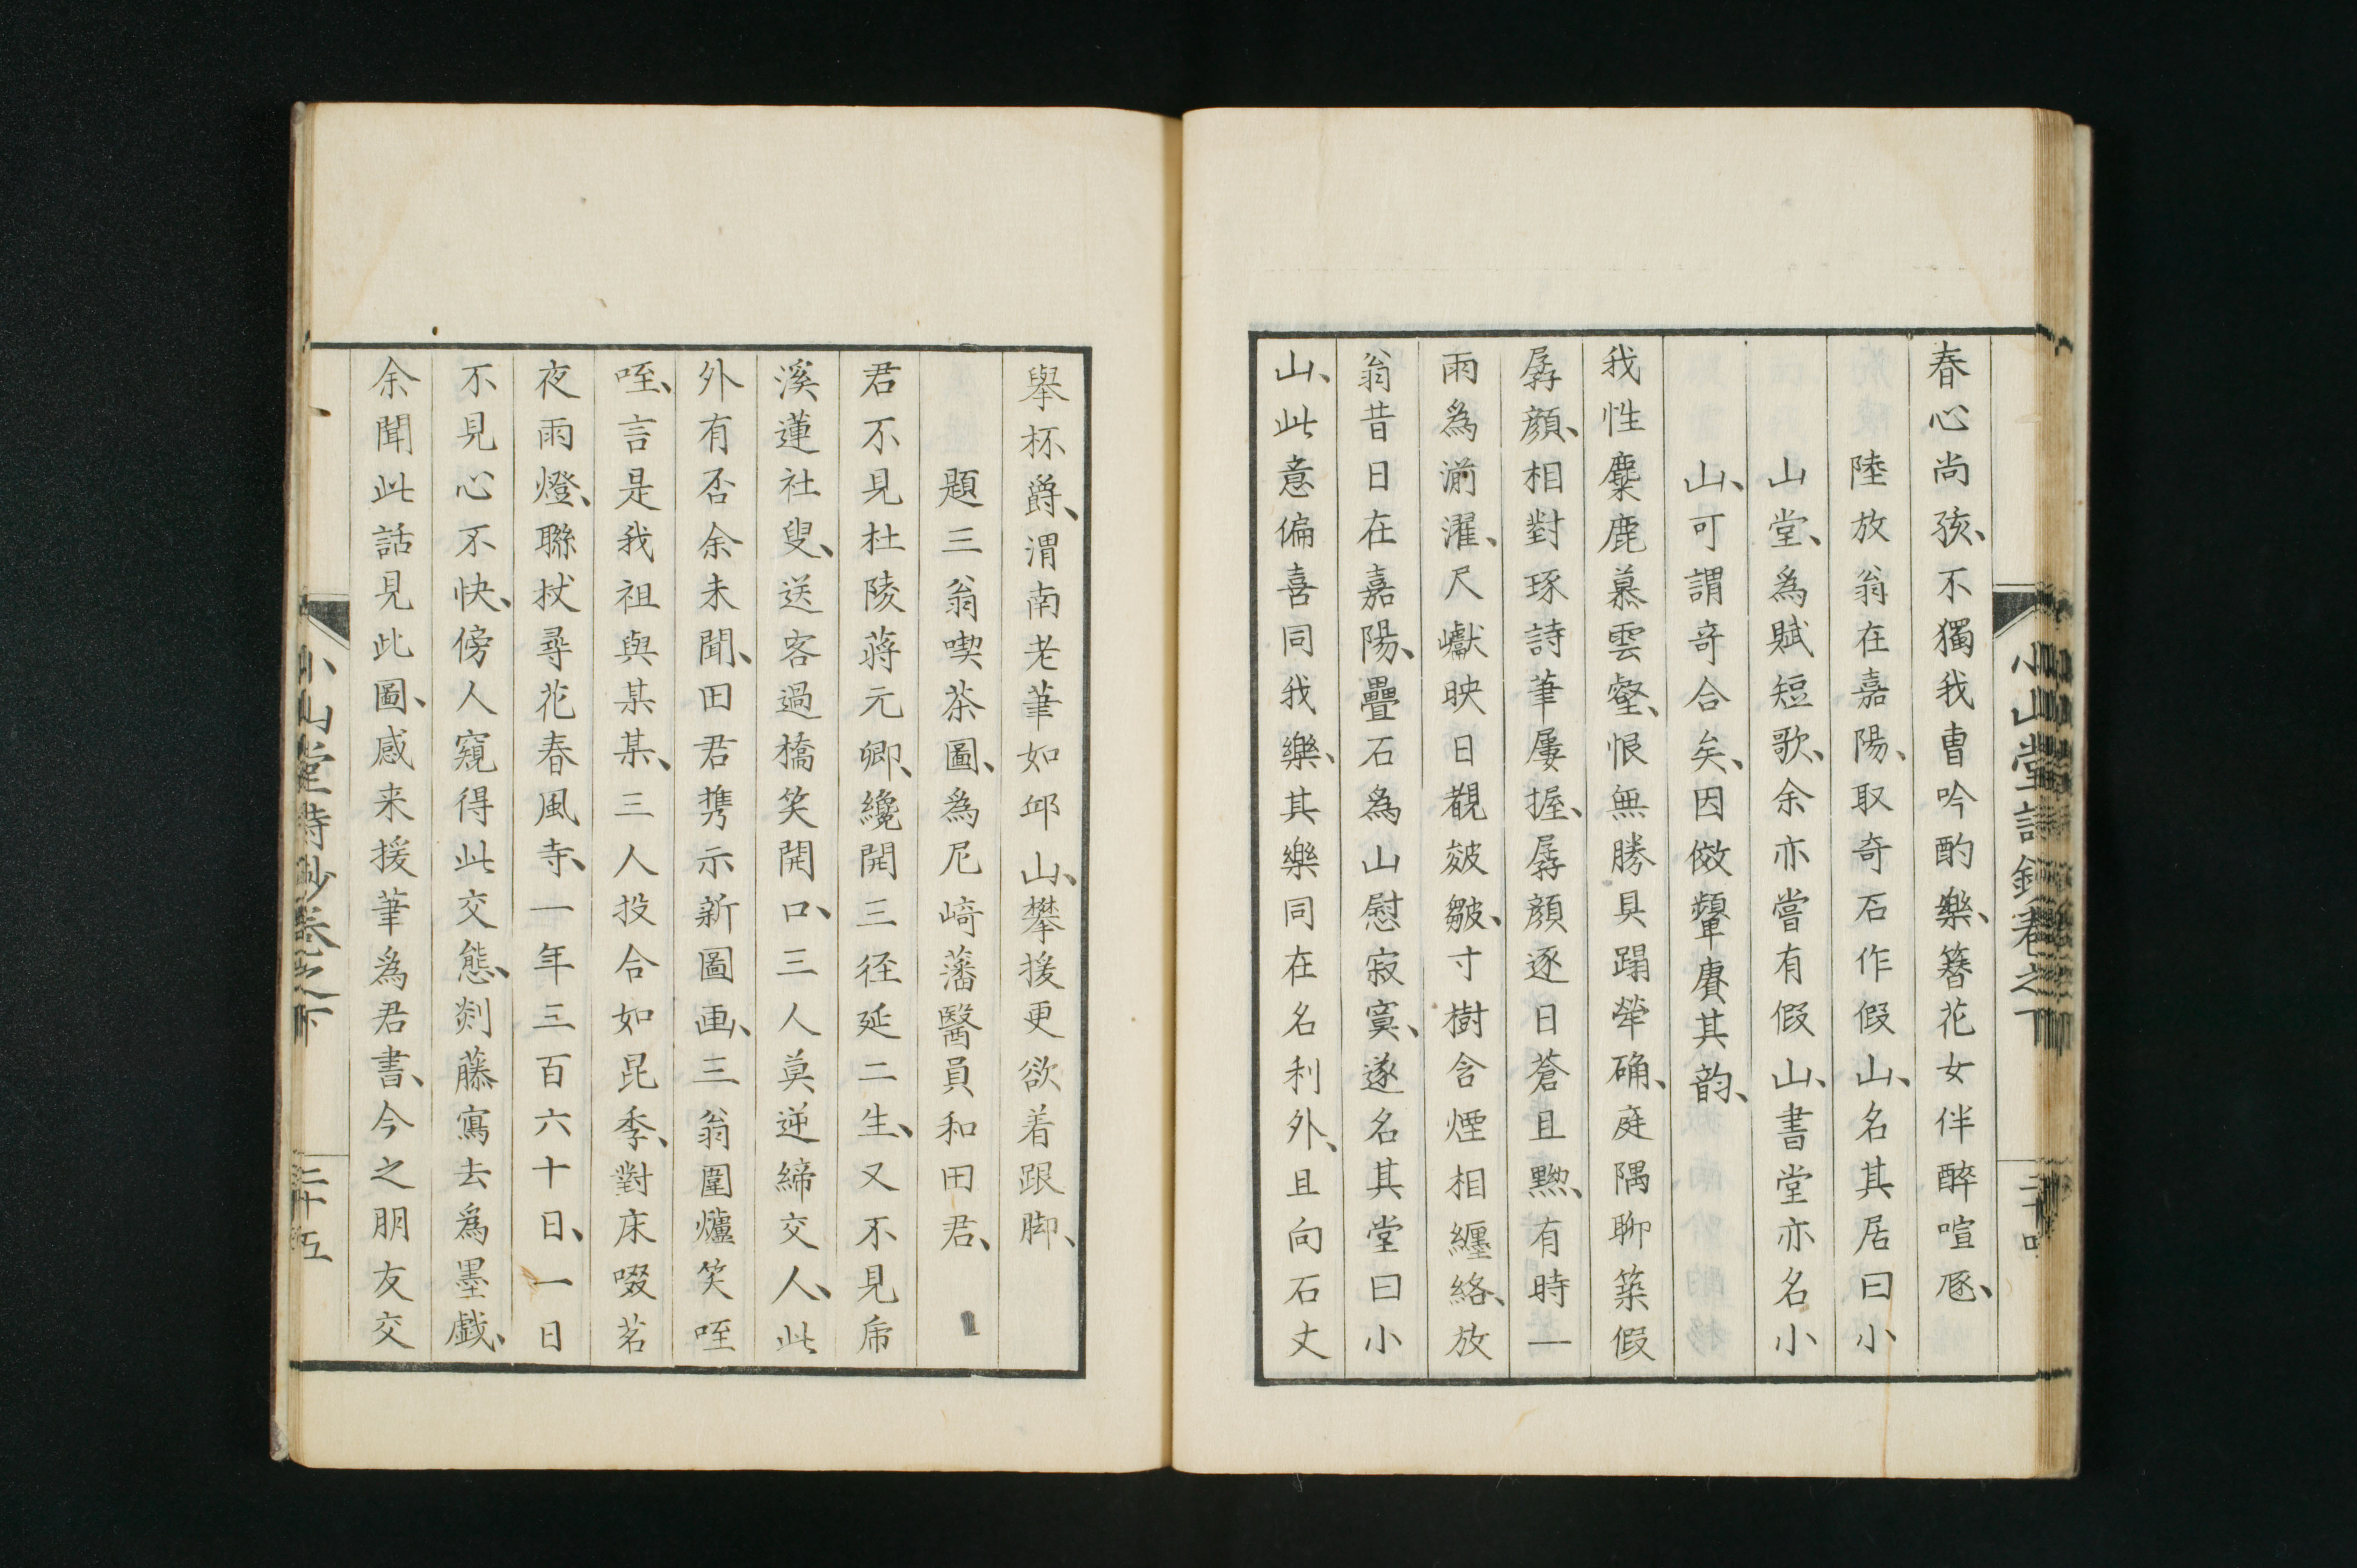 春心尚孩、不獨我曹吟酌樂、簪花女伴醉喧豗、
陸放翁在嘉陽、取奇石作假山、名其居曰小
山堂、為賦短歌、余亦嘗有假山、書堂亦名小
山、可謂奇合矣、因傚顰賡其韵、
我性麋鹿慕雲壑、恨無勝具蹋犖确、庭隅聊築假
孱顏、相對琢詩筆屢握、孱顏逐日蒼且黝、有時一
雨為湔濯、尺巘映日覩皴皺、寸樹含煙相纏絡、放
翁昔日在嘉陽、疊石為山慰寂寞、遂名其堂曰小
山、此意偏喜同我樂、其樂同在名利外、且向石丈
小山堂詩鈔卷之下
舉杯爵、渭南老筆如邱山、攀援更欲着跟脚、
題三翁喫茶圖、為尼崎藩醫員和田君、
君不見杜陵蔣元卿、纔開三径延二生、又不見虎
溪蓮社叟、送客過橋笑開口、三人莫逆締交人、此
外有否余未聞、田君携示新圖画、三翁圍爐笑咥
咥、言是我祖與某某、三人投合如昆季、對床啜茗
夜雨燈、聯杖尋花春風寺、一年三百六十日、一日
不見心不快、傍人窺得此交態、剡藤寫去為墨戲、
余聞此話見此圖、感来援筆為君書、今之朋友交
小山堂詩鈔卷之下
二十五